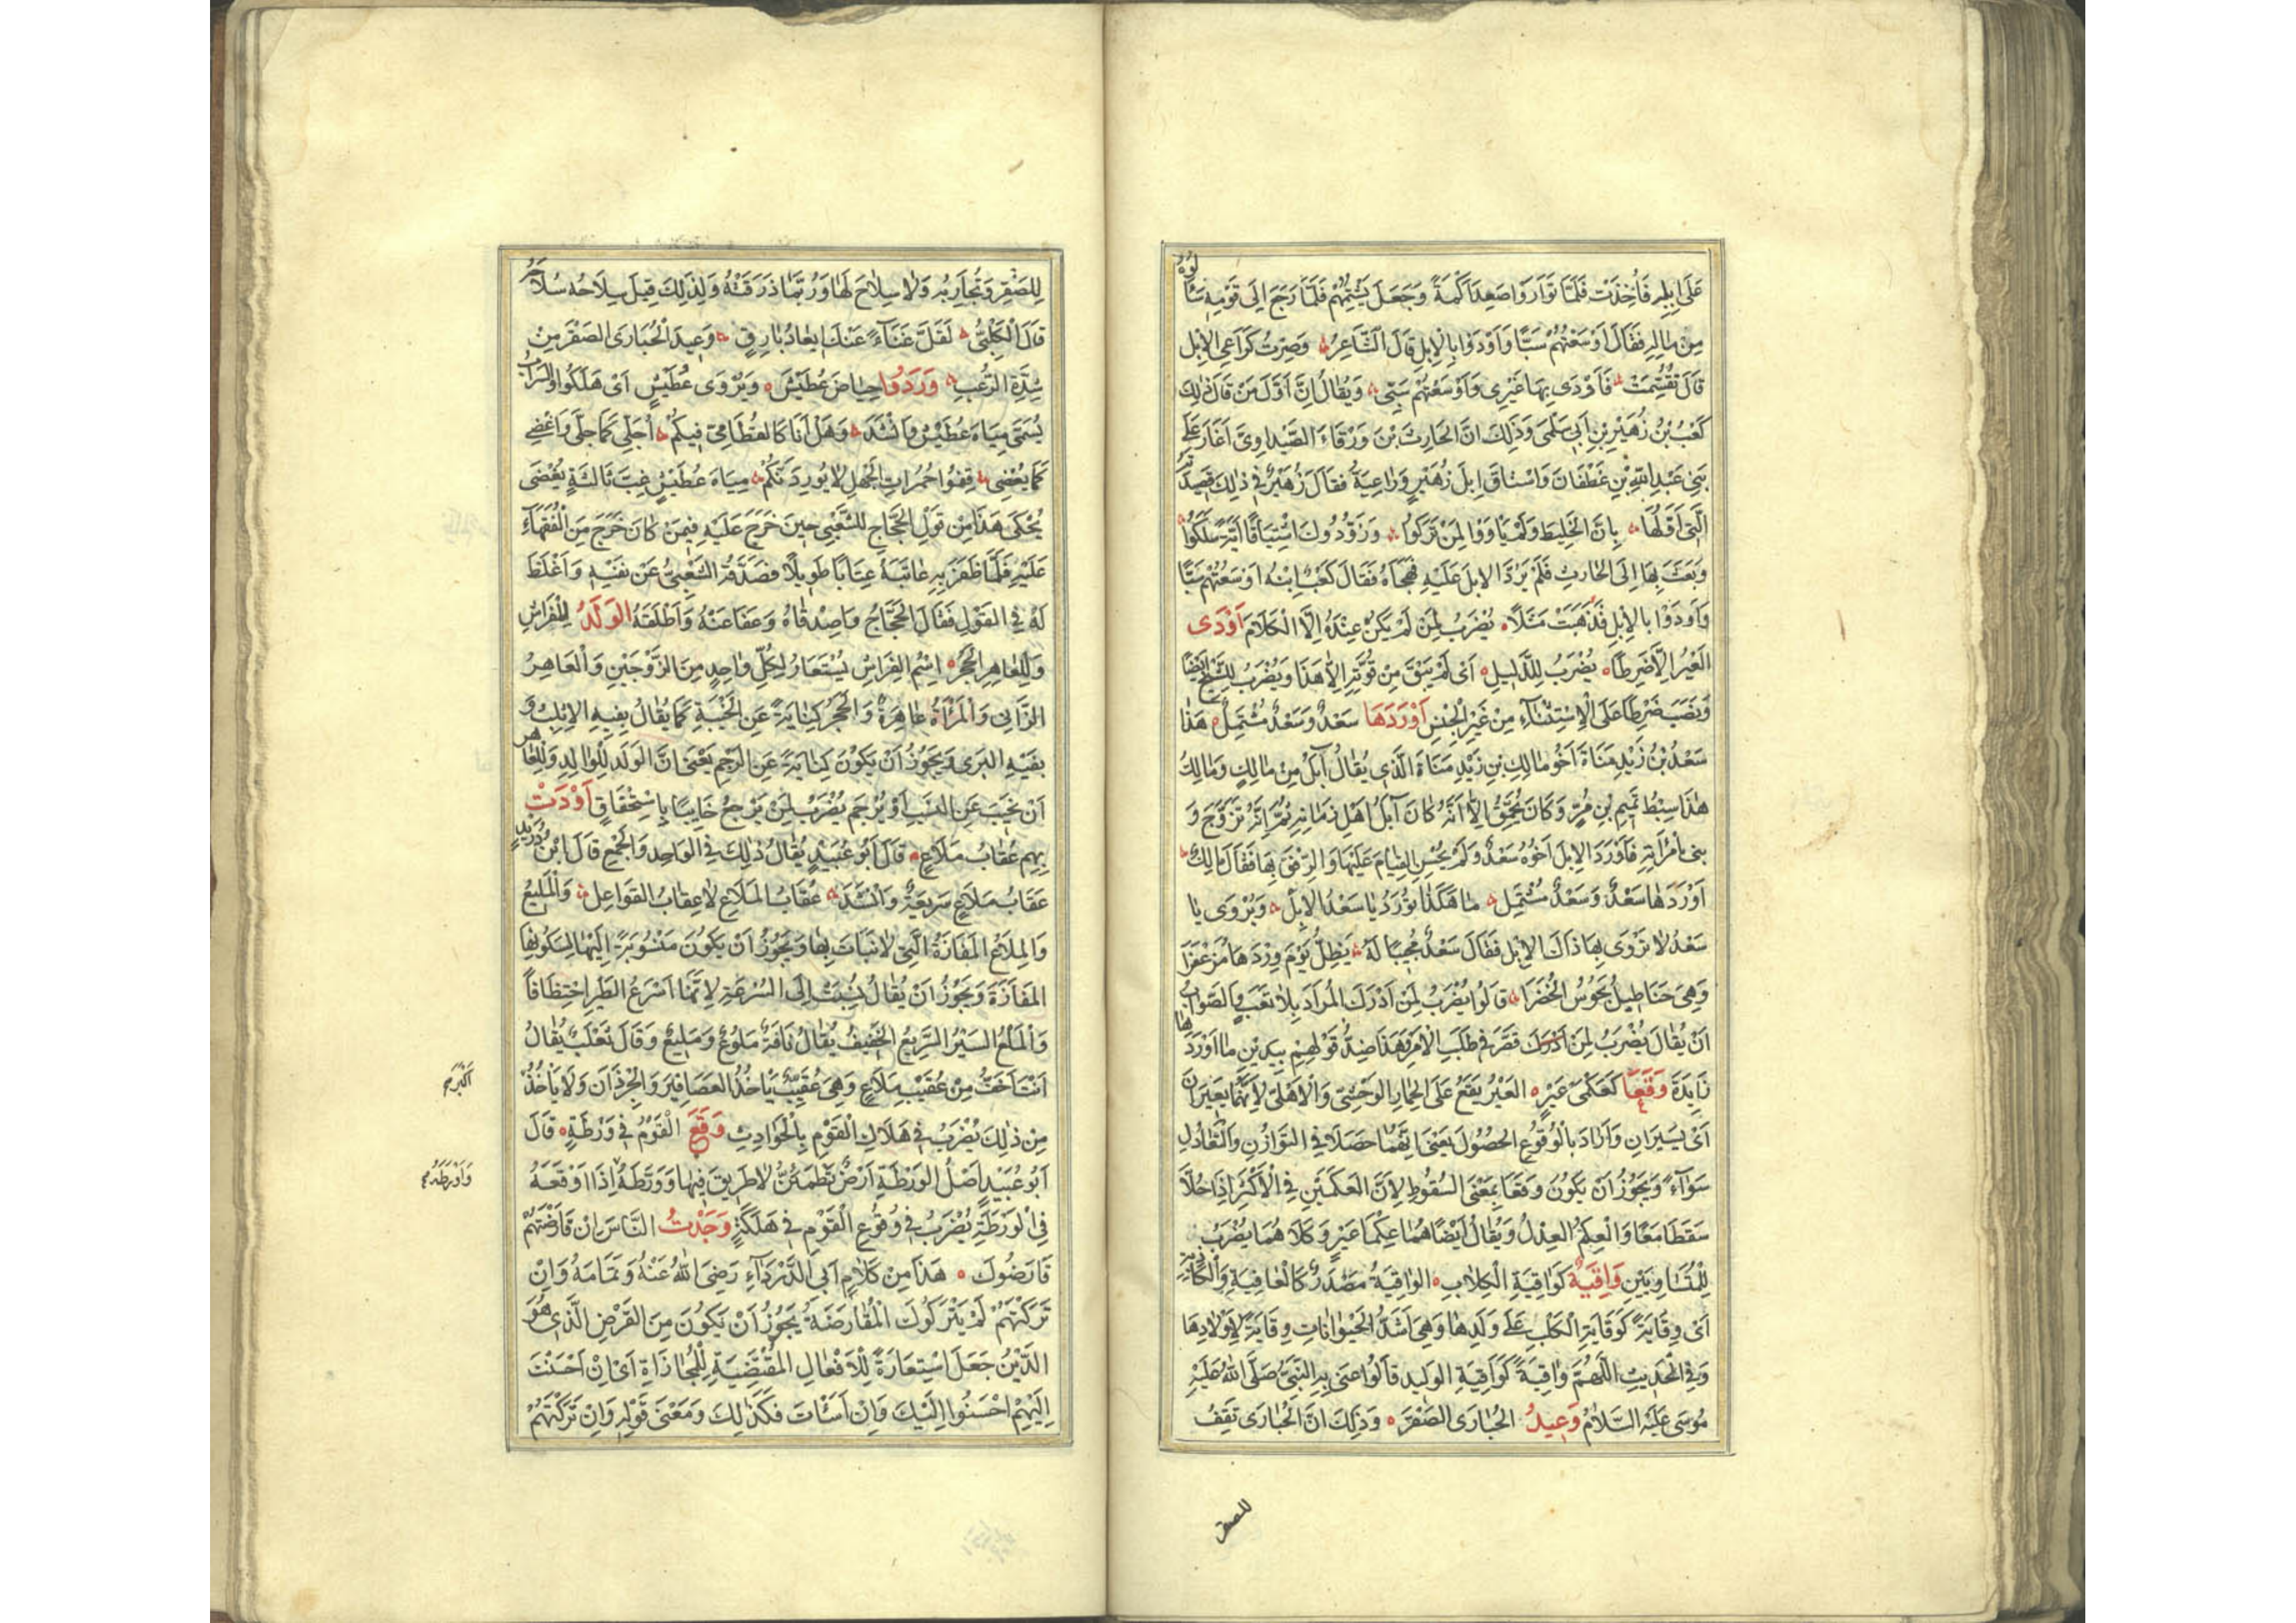 عَلَى اِبِلِهِ فَاُخِذَتْ فَلَمَّا تَوَارَوَا صَعِدَ اَكَمَةً وَجَعَلَ يَشْتِمُهُمْ فَلَمَّا رَجَعَ اِلَى قَوْمِهِ سَأَلُوهُ
مِنْ مَالِهِ فَقَالَ اَوْسَعْتُهُمْ سَبًّا وَاَوْدَوْا بِالْاِبِلِ قَالَ الشَّاعِرُ وَصِرْتُ كَرَاعِي الْاِبِلِ
قَالَ تَقَسَّمَتْ فَاَوْدَى بِهَا غَيْرِى وَاَوْسَعْتُهُمْ سَبِّى وَيُقَالُ اِنَّ اَوَّلَ مَنْ قَالَ ذٰلِكَ
كَعْبُ بْنُ زُهَيْرِ بْنِ اَبِى سُلْمَى وَذٰلِكَ اَنَّ الحَارِثَ بْنَ وَرْقَاءَ الصَّيْدَاوِىَّ اَغَارَ عَلَى
بَنِى عَبْدِ اللّٰهِ بْنِ غَطْفَانَ وَاسْتَاقَ اِبِلَ زُهَيْرٍ وَرَاعِيَهُ فَقَالَ زُهَيْرٌ فِى ذٰلِكَ قَصِيدَتَهُ
الَّتِى اَوَّلُهَا بَانَ الخَلِيطُ وَلَمْ يَأْوُوا لِمَنْ تَرَكُوا وَزَوَّدُوكَ اشْتِيَاقًا اَيَّةً سَلَكُوا
وَبَعَثَ بِهَا اِلَى الحَارِثِ فَلَمْ يَرُدَّ الاِبِلَ عَلَيْهِ فَهَجَاهُ فَقَالَ كَعْبٌ اِبْنُهُ اَوْسَعْتُهُمْ سَبًّا
وَاَوْدَوْا بالْاِبِلِ فَذَهَبَتْ مَثَلًا يُضْرَبُ لِمَنْ لَمْ يَكُنْ عِنْدَهُ اِلَّا الْكَلَامُ اَوْدَى
العَيْرُ اِلَّا ضَرِطًا يُضْرَبُ لِلذَّلِيلِ اَىْ لَمْ يَبْقَ مِنْ قُوَّتِهِ اِلَّا هَذَا وَيُضْرَبُ لِلشَّيْخِ اَيْضًا
وَنُصِبَ ضَرِطًا عَلَى الْاِسْتِثْنَاءِ مِنْ غَيْرِ الْجِنْسِ اَوْرَدَهَا سَعْدٌ وَسَعْدٌ مُشْتَمِلٌ هَذَا
سَعْدُ بْنُ زَيْدِ مَنَاةَ اَخُو مَالِكِ بنِ زَيْدِ مَنَاةَ الَّذِى يُقَالُ آبَلُ مِنْ مَالِكٍ وَمَالِكُ
هٰذَا سِبْطُ تَمِيمِ بْنِ مُرٍّ وَكَانَ يُحَمَّقُ اِلَّا اَنَّهُ كَانَ آبَلَ اَهْلِ زَمَانِهِ ثُمَّ اِنَّهُ تَزَوَّجَ وَ
بنى بِاْمْرَأَتِهِ فَاَوْرَدَ الاِبِلَ اَخُوهُ سَعْدٌ وَلَمْ يُحْسِنِ القِيَامَ عَلَيْهَا وَالرِّفْقَ بِهَا فَقَالَ مَالِكٌ
اَوْرَدَهَا سَعْدٌ وَسَعْدٌ مُشْتَمِل مَا هَكَذَا تُوْرَدُ يَا سَعْدُ الاِبِلْ وَيُرْوَى يَا
سَعْدُ لَا تُرْوَى بِهَا ذَاكَ الاِبِلْ فَقَالَ سَعْدٌ مُجِيبًا لَهُ يَظَلُّ يَوْمَ وِرْدِهَا مُزَعْفَرَا
وَهِىَ حَنَاطِيلُ تَجُوسُ الْخُضَرَا قَالُوا يُضْرَبُ لِمَنْ اَدْرَكَ الْمُرَادَ بِلَا تَعَبٍ وَالصَّوَابُ
اَنْ يُقَالَ يُضْرَبُ لِمَنْ قَصَّرَ فِى طَلَبِ الْاَمْرِ وَهَذَا ضِدُّ قَوْلِهِمْ بِيَدَيْنِ مَا اَوْرَدَهَا
زَايِدَةُ وَقَعَا كَعَكْمَىْ عَيْرٍ العَيْرُ يَقَعُ عَلَى الحِمَارِ الوَحْشِىِّ وَالْاَهْلِىِّ لِاَنَّهُمَا يَعِيرَانِ
اَىْ يَسِيرَانِ وَاَرَادَ بِالْوُقُوعِ الحُصُولَ يَعْنِى اَنَّهُمَا حَصَلَا فِى التَّوَازُنِ وَالتَّعَادُلِ
سَوَآءً وَيَجُوزُ اَنْ يَكُونَ وَقَعَا بِمَعْنَى السُّقُوطِ لِاَنَّ العِكْمَيْنِ فِى الْاَكْثَرِ اِذَا حُلَّا
سَقَطَا مَعًا وَالْعِكْمُ العِدْلُ وَيُقَالُ اَيْضًا هُمَا عِكْمَا عَيْرٍ وَكِلَاهُمَا يُضْرَبُ
لِلْمُتَسَاوِيَيْنِ وَاقِيَةٌ كَوَاقِيَةِ الْكِلَابِ الوَاقِيَةُ مَصْدَرٌ كَالْعَافِيَةِ وَالْكَاذِبَةِ
اَىْ وِقَايَةً كَوِقَايَةِ الْكَلْبِ عَلَى وَلَدِهَا وَهِىَ اَشَدُّ الْحَيْوَانَاتِ وِقَايَةً لِاَوْلَادِهَا
وَفِى الْحَدِيثِ اللّٰهُمَّ وَاقِيَةً كَوَاقِيَةِ الوَلِيدِ قَالُوا عنَى بِهِ النَّبِىُّ صَلَّى اللّٰهُ عَلَيْهِ
مُوسَى عَلَيْهِ السَّلَامُ وَعِيدُ الحُبَارَى الصَّقْرَ وَذٰلِكَ اَنَّ الحُبَارَى تَقِفُ
للصقر
لِلصَّقْرِ وَتُحَارِبُهُ وَلَا سِلَاحَ لَهَا وَرُبَّمَا ذَرَقَتْهُ وَلِذٰلِكَ قِيلَ سِلَاحُهُ سُلَاحُهُ
قَالَ الْكِلَبِىُّ لَقَلَّ غَنَاءً عَنْكَ اِيعَادُ بَارِقٍ وَعِيدَ الْحُبَارَى الصَّقْرَ مِنْ
شِدَّةِ الرُّعْبِ وَرَدُوا حِيَاضَ عُطَيْشَ وَيُرْوَى عُطَيْشٍ اَىْ هَلَكُوا وَالسَّرَابُ
يُسَمَّى مِيَاهَ عُطَيْشٍ وَاَنْشَدَ وَهَلْ اَنَا كَالقُطَامِىِّ فِيكُمْ اُجَلِّى كَمَا جَلَّى وَاُغْضِى
كَمَا يُغْضِى قِفُوا حُمُرَاتِ الْجَهْلِ لَا يُورِدَنَّكُمْ مِيَاهَ عُطَيْشٍ غِبَّ ثَالِثَةٍ يُغْضَى
يُحْكَى هَذَا مِنْ قَوْلِ الحَجَّاجِ لِلشَّعْبِىِّ حِينَ خَرَجَ عَلَيْهِ فِيمَنْ كَانَ خَرَجَ مِنَ الْفُقَهَاءِ
عَلَيْهِ فَلَمَّا ظَفَرَ بِهِ عَاتَبَهُ عِتَابًا طَوِيلًا فَصَدَّقَهُ الشَّعْبِىُّ عَنْ نَفْسِهِ وَاَغْلَظَ
لَهُ فِى القَوْلِ فَقَالَ الحَجَّاجُ وَاصِدْقَاهُ وَعَفَا عَنْهُ وَاَطْلَقَهُ الوَلَدُ لِلْفَرَاشِ
وَلِلْعَاهِرِ الْحَجَرُ اِسْمُ الفِرَاشِ يُسْتَعَارُ لِكُلِّ وَاحِدٍ مِنَ الزَّوْجَيْنِ وَالْعَاهِرُ
الزَّانِى وَالْمَرْأَةُ عَاهِرَةٌ وَالْحَجَرُ كِنَايَةً عَنِ الْخَيْبَةِ كَمَا يُقَالُ بِفِيهِ الاِثْلِبُ وَ
بِفِيهِ البَرَى وَيَجُوزُ اَنْ يَكُونَ كِنَايَةً عَنِ الرَّجْمِ يَعْنِى اَنَّ الوَلَدَ لِلْوَالِدِ وَلِلْعَاهِرِ
اَنْ يَخِيبَ عَنِ النَّسَبِ اَوْ يُرْجَمَ يُضْرَبُ لِمَنْ يَرْجِعُ خَايِبًا بِاسْتِحْقَاقٍ اَوْدَتْ
بِهِمْ عُقَابُ مَلَاعِ قَالَ اَبُو عُبَيْدٍ يُقَالُ ذٰلِكَ فِى الوَاحِدِ وَالْجَمْعِ قَالَ ابْنُ دُرَيْدٍ
عُقَابُ مَلَاعٍ سَرِيعَةٌ وَاَنْشَدَ عُقَابُ المَلَاعِ لَا عِقَابُ القَوَاعِلِ وَالْمَلِيعُ
وَالمِلَاعُ المَفَازَةُ الَّتِى لَا نَبَاتَ بِهَا وَيَجُوزُ اَنْ يَكُونَ مَنْسُوبَةً اِلَيْهَا لِسَكُونِهَا
المَفَازَةَ وَيَجُوزُ اَنْ يُقَالُ نُسِبَتْ اِلَى السُّرْعَةِ لِاَنَّهَا اَسْرَعُ الطَّيْرِ اخْتِطَافًا
وَالْمَلْعُ السَّيْرُ السَّرِيعُ الخَفِيفُ يُقَالُ نَاقَةٌ مَلُوعٌ وَمَلِيعٌ وَقَالَ ثَعْلَبٌ يُقَالُ
اَنْتَ اَخَفُّ مِنْ عُقَيِّبِ مَلَاعِ وَهِىَ عُقَيِّبٌ يَاخُذُ العَصَافِيرَ وَالْجُرْذَانَ وَلَا يَاْخُذُ
اَكْبَرَ
مِنْ ذٰلِكَ يُضْرَبُ فِى هَلَاكِ الْقَوْمِ بِالْحَوَادِثِ وَقَعَ الْقَوْمُ فِى وَرْطَةٍ قَالَ
اَبُو عُبَيْدٍ اَصْلُ الوَرْطَةِ اَرْضٌ تَطْمَئِنُّ لَا طَرِيقَ فِيهَا وَوَرَّطَهُ اِذَا اَوْقَعَهُ
وَاَوْرَطَهُ
فِى الوَرْطَةِ يُضْرَبُ فِى وُقُوعِ الْقَوْمِ فِى هَلَكَةٍ وَجَدْتُ النَّاسَ اِنْ قَارَضْتَهُمْ
قَارَضُوكَ هَذَا مِنْ كَلَامِ اَبِى الدَّرْدَآءِ رَضِىَ اللّٰهُ عَنْهُ وَتَمَامُهُ وَاِنْ
تَرَكْتَهُمْ لَمْ يَتْرُكُوكَ الْمُقَارَضَةُ يَجُوزُ اَنْ يَكُونَ مِنَ القَرْضِ الَّذِى هُوَ
الدَّيْنُ جَعَلَ اسْتِعَارَةً لِلْاَفْعَالِ المُقْتَضِيَةِ لِلْمُجَازَاةِ اَىْ اِنْ اَحْسَنْتَ
اِلَيْهِمْ اَحْسَنُوا اِلَيْكَ وَاِنْ اَسَأْتَ فَكَذٰلِكَ وَمَعْنَى قَوْلِهِ وَاِنْ تَرَكْتَهُمْ